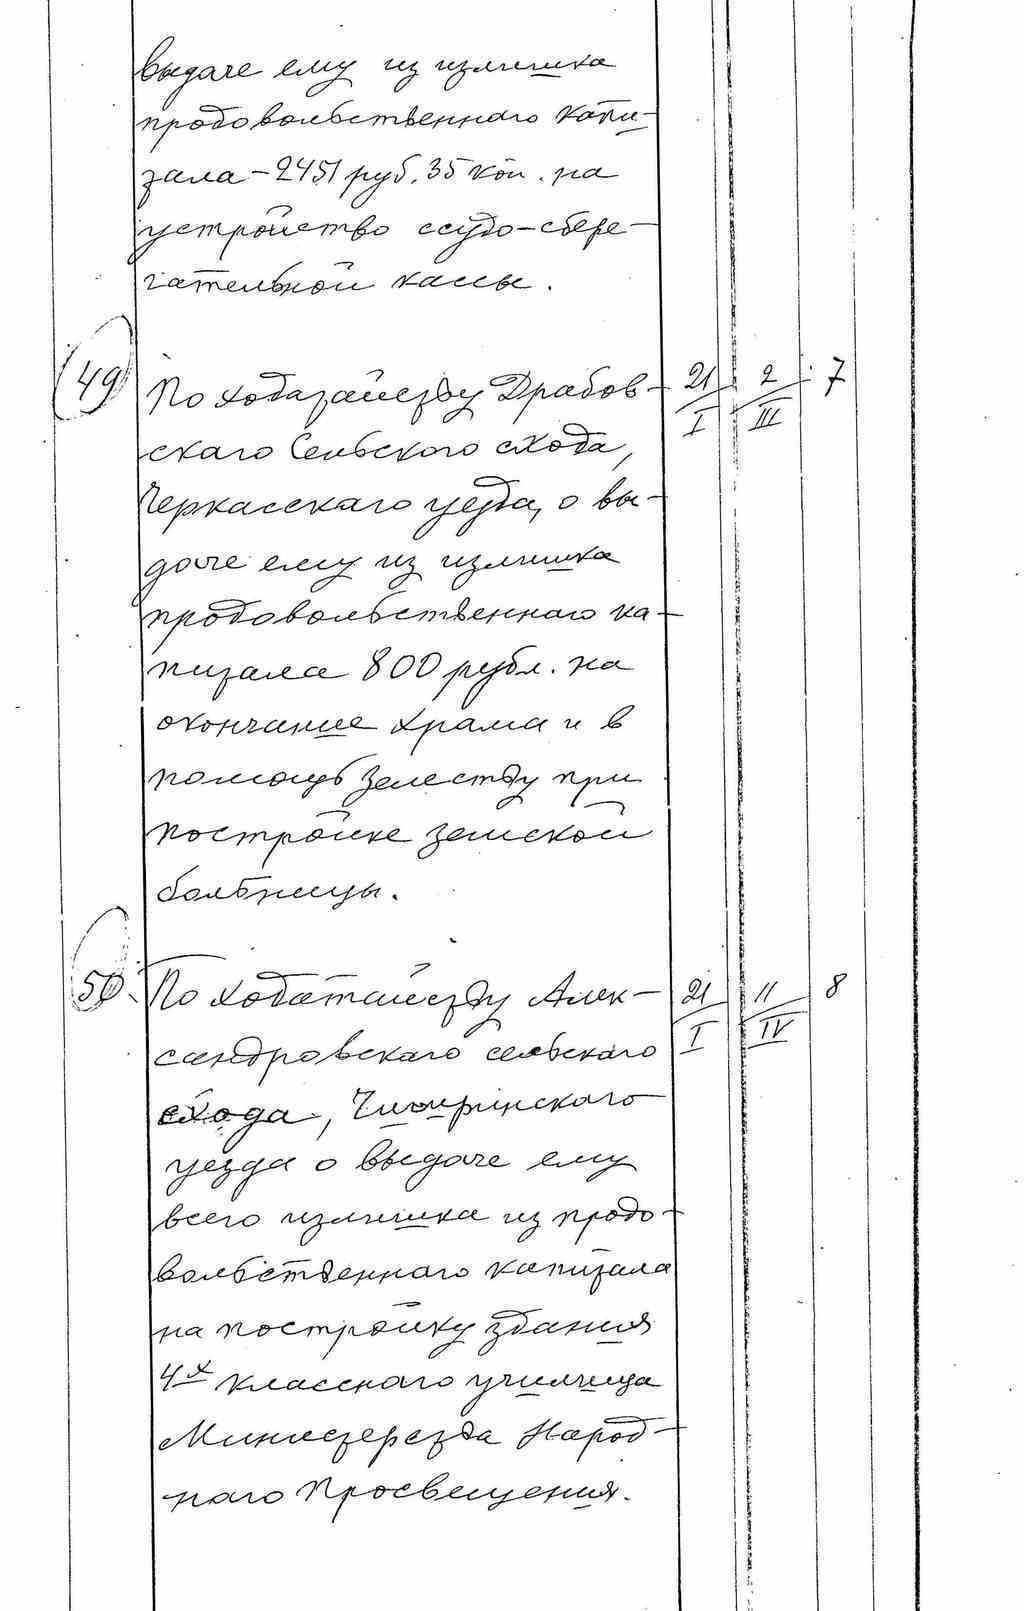 выдаче ему из излишка
продовольственнаго капи-
тала – 2451 руб. 35 коп. на
устройство ссудо-сбере-
гательной кассы.
49 По ходатайству Драбов- 21/I 2/III 7
скаго Сельского схода,
Черкасскаго уезда, о вы-
даче ему из излишка
продовольственнаго ка-
питала 800 рубл. на
окончание храма и в
помощь земству при
постройке земской
больницы.
50 По ходатайству Алек- 21/I 11/IV 8
сандровскаго сельскаго
схода, Чигиринскаго
уезда о выдаче ему
всего излишка из продо-
вольственнаго капитала
на постройку здания
4х классного училища
Министерства Народ-
наго Просвещения.